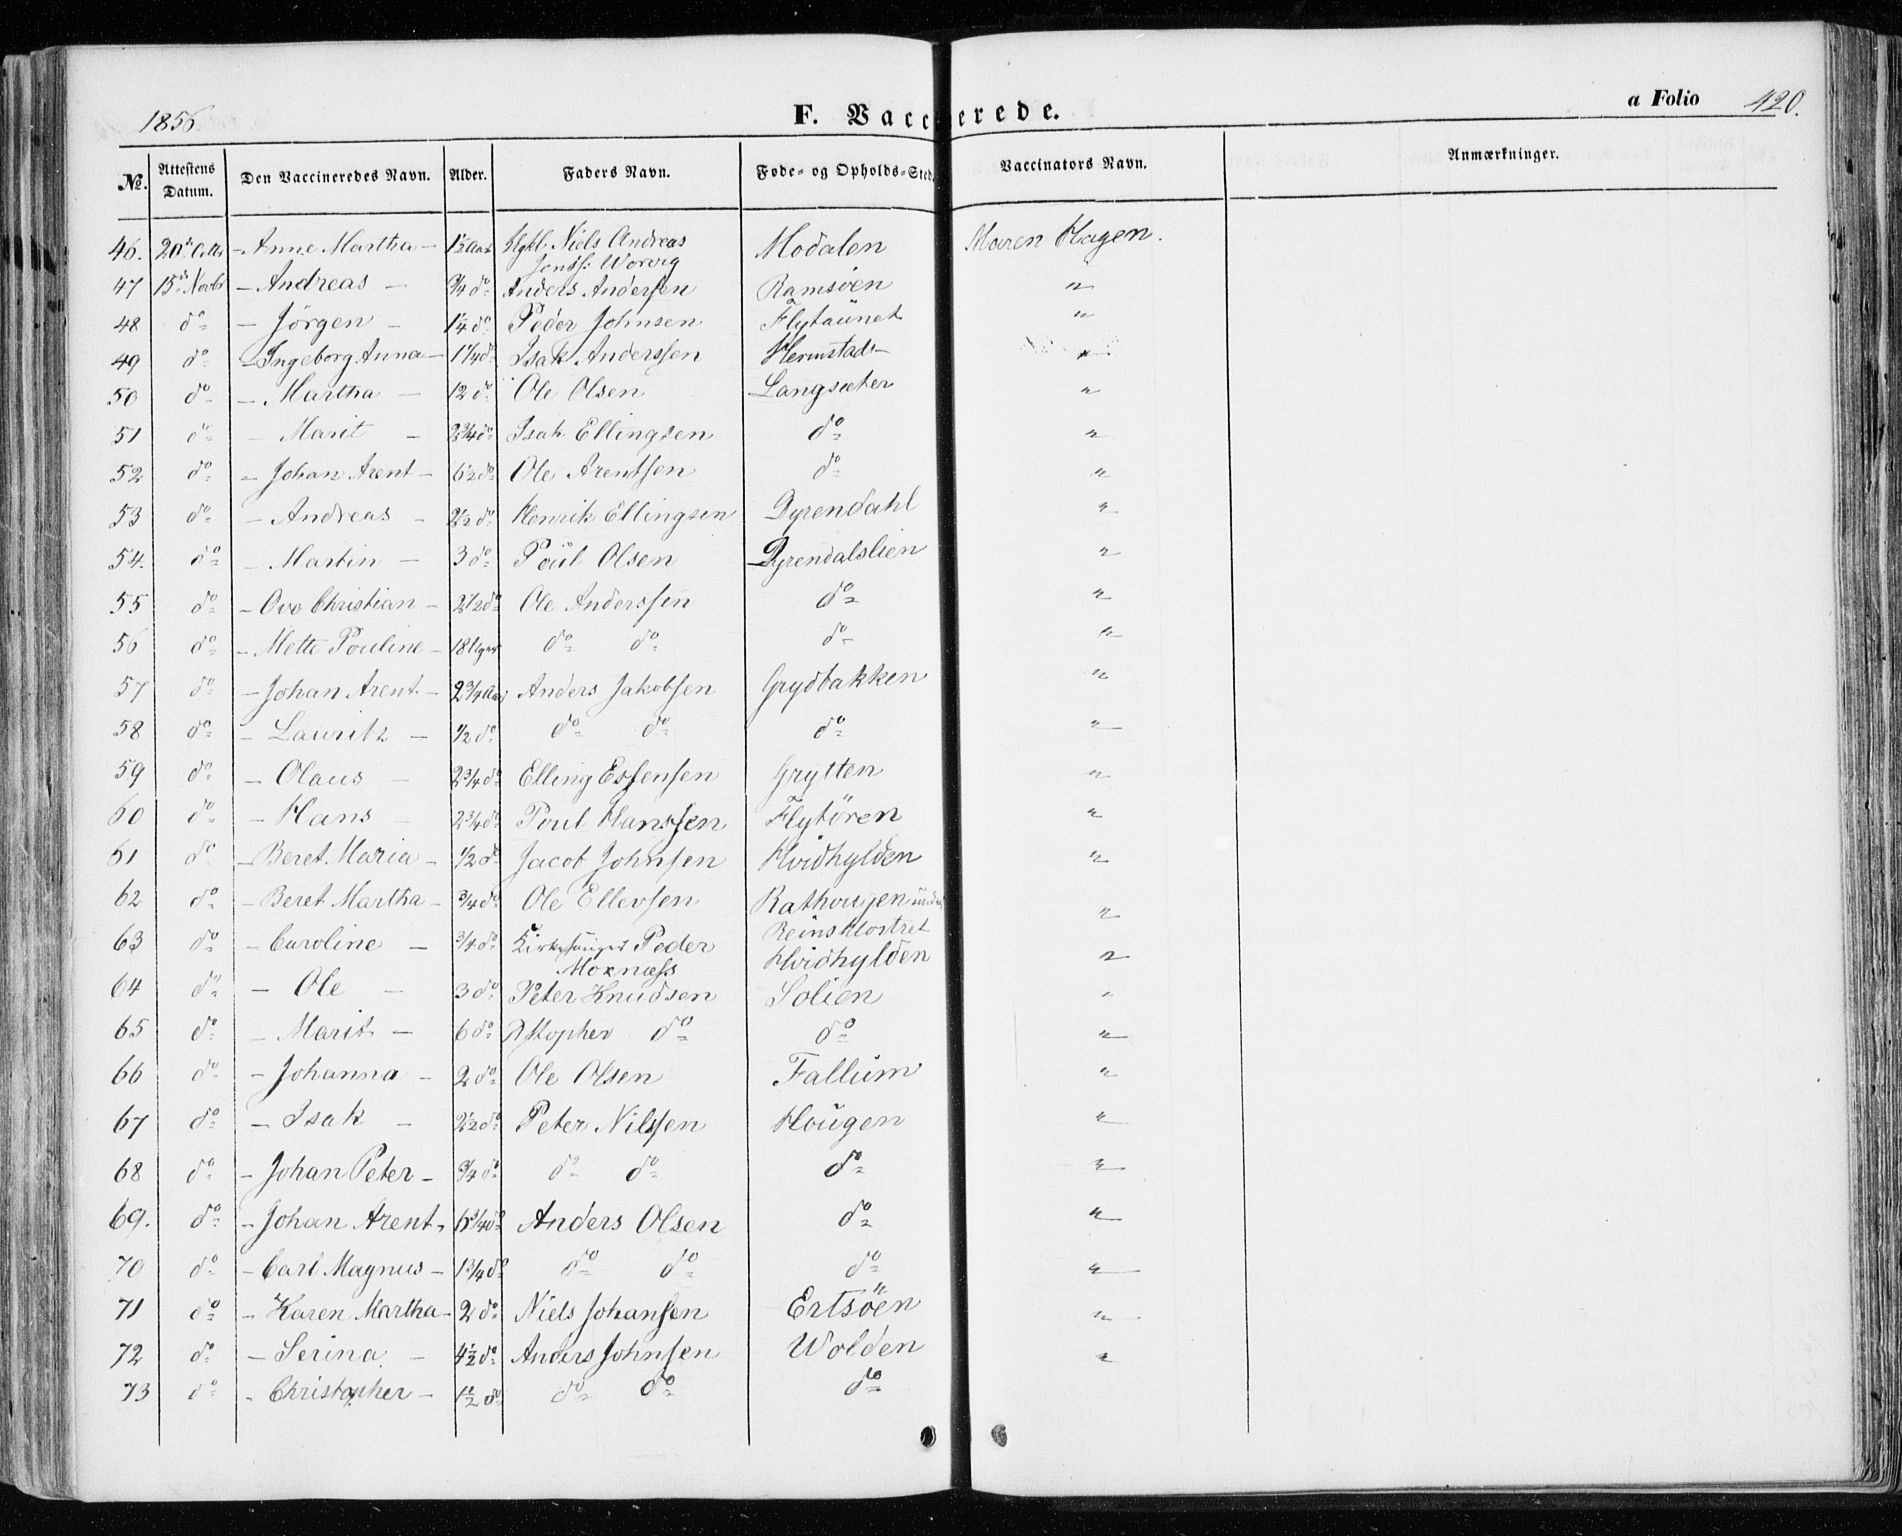 1856
F. Vaccinerede.
a Folio 420.
No. Attestens Datum. Den Vaccineredes Navn. Alder. Faders Navn. Føde- og Opholds-Sted. Vaccinators Navn. Anmærkninger.
46. 20de Octbr - Anne Martha - 1½ Aar Niels Andreas Modalen Maren Hagen.
Jonss: Worvig
47 15de Novbr - Andreas - ¾ do Anders Andersen Ramsøen "
48 do - Jörgen - 1¼ do Peder Johnsen Flytaünet "
49 do - Ingeborg Anna - 1¼ do Isak Anderssen Hermstad - "
50 do - Martha - 12 do Ole Olsen Langsæter "
51 do - Marit - 2¾ do Isak Ellingsen do "
52 do - Johan Arent - 6½ do Ole Arentsen do "
53 do - Andreas - 2½ do Henrik Ellingsen Dyrendahl "
54. do - Martin - 3 do Poül Olsen Dyrendalslien "
55 do - Ove Christian - 2½ do Ole Anderssen do "
56 do - Mette Pouline - 18 Uger do do do "
57 do - Johan Arent - 2¾ Aar Anders Jakobsen Grydbakken "
58 do - Lauritz - ½ do do do do "
59 do - Olaus - 2¾ do Elling Essensen Grytten "
60 do - Hans - 2¾ do Poul Hanssen Flytören "
61 do - Beret Maria - ½ do Jacob Johnsen Hvidhylden "
62 do - Beret Martha - ¾ do Ole Ellevsen Rathougen under "
Reinsklostret
63 do - Caroline - ¾ do Kirkesanger Peder Hvidhylden "
Moxness
64 do - Ole - 3 do Peter Knudsen Solien "
65 do - Marit - 6 do do do "
66 do - Johanna - 2 do Ole Olsen Fallüm "
67 do - Isak - 2½ do Peter Nilssen Hougen "
68 do - Johan Peter - ¾ do do do do "
69. do - Johan Arent - 6¾ do Anders Olsen do "
70 do - Carl Magnus - 1¾ do do do do "
71 do - Karen Martha - 2 do Niels Johansen Ertsöen "
72 do - Serina - 4½ do Anders Johnsen Wolden "
73 do - Christopher - 1½ do do do do